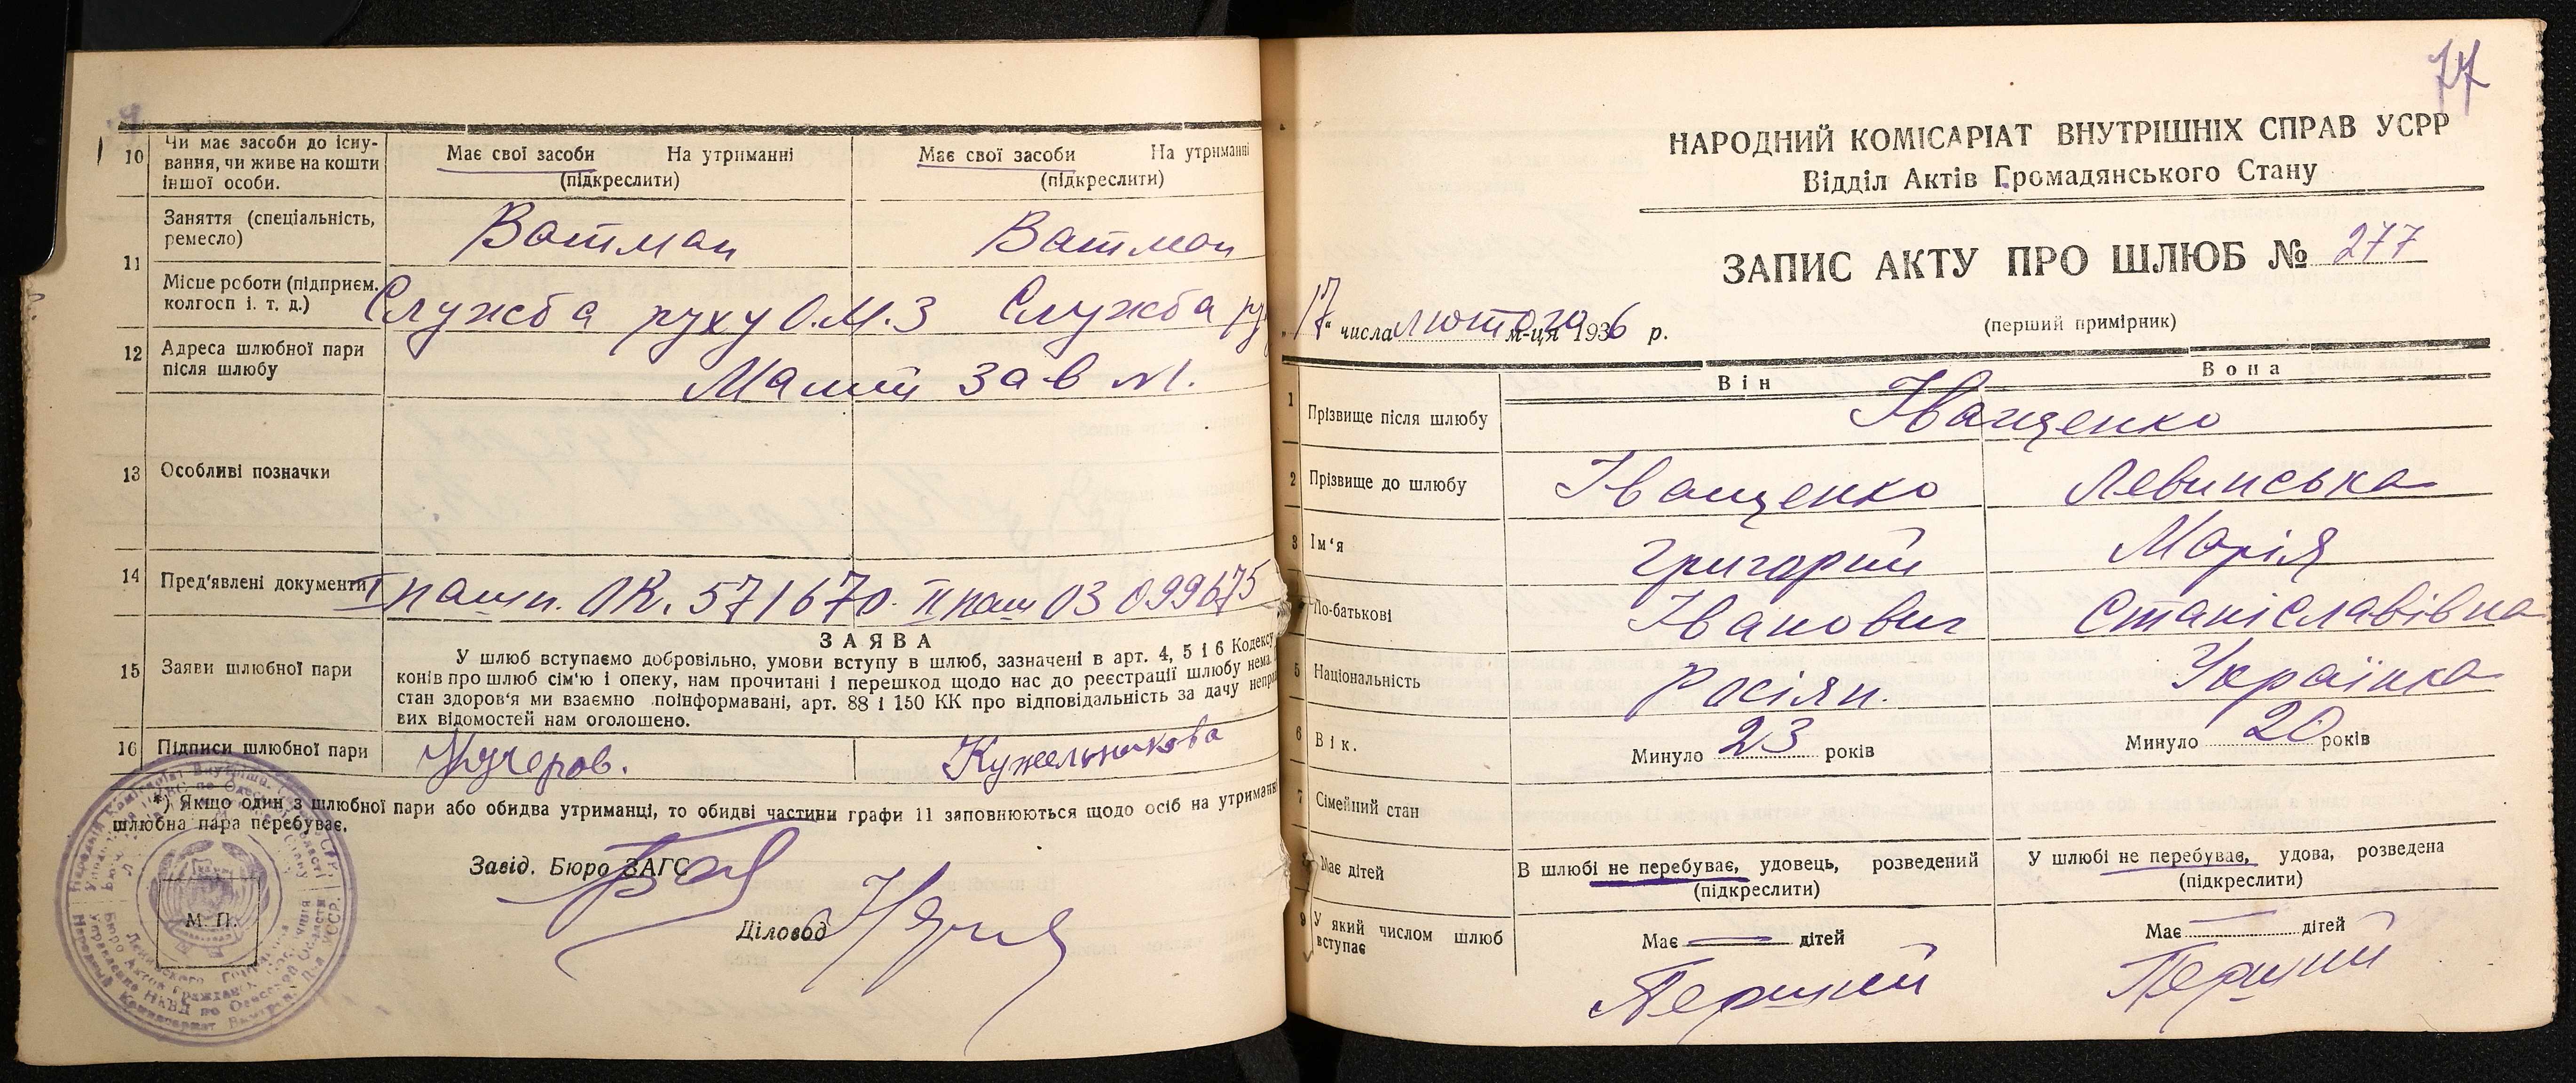 10 Чи має засоби до існу-
вання, чи живе на кошти
іншої особи.
Має свої засоби На утриманні
(підкреслити)
Має свої засоби На утриманні
(підкреслити)
11 Заняття (спеціальність,
ремесло)
Ватман
Ватман
Місце роботи (підприєм.
колгосп і. т. д.)
Служба руху О.М.З
Служба ру
12 Адреса шлюбної пари
після шлюбу
13 Особливі позначки
14 Пред'явлені документи
I пашп. ОК. 571670. II паш 03 099675
15 Заяви шлюбної пари
ЗАЯВА
У шлюб вступаємо добровільно, умови вступу в шлюб, зазначені в арт. 4, 5 і 6 Кодексу
конів про шлюб сім'ю і опеку, нам прочитані і перешкод щодо нас до реєстрації шлюбу нема.
стан здоров'я ми взаємно поінформавані, арт. 88 і 150 КК про відповідальність за дачу непра
вих відомостей нам оголошено.
16 Підписи шлюбної пари
Кучеров.
Кужельникова
*) Якщо один з шлюбної пари або обидва утриманці, то обидві частини графи 11 заповнюються щодо осіб на утриманні
шлюбна пара перебуває.
Завід. Бюро ЗАГС
Діловод
М. П.
77
НАРОДНИЙ КОМІСАРІАТ ВНУТРІШНІХ СПРАВ УСРР
Відділ Актів Громадянського Стану
ЗАПИС АКТУ ПРО ШЛЮБ № 277
"17" числа лютого м-ця 1936 р.
(перший примірник)
Він Вона
1 Прізвище після шлюбу
Іващенко
2 Прізвище до шлюбу
Іващенко
Левинська
3 Ім'я
Григорий
Марія
По-батькові
Іванович
Станіславівна
5 Національність
Росіян.
Українка
6 Вік.
Минуло 23 років
Минуло 20 років
7 Сімейний стан
8 Має дітей
В шлюбі не перебуває, удовець, розведений
(підкреслити)
У шлюбі не перебуває, удова, розведена
(підкреслити)
9 У який числом шлюб
вступає
Має — дітей
Має — дітей
Перший
Перший